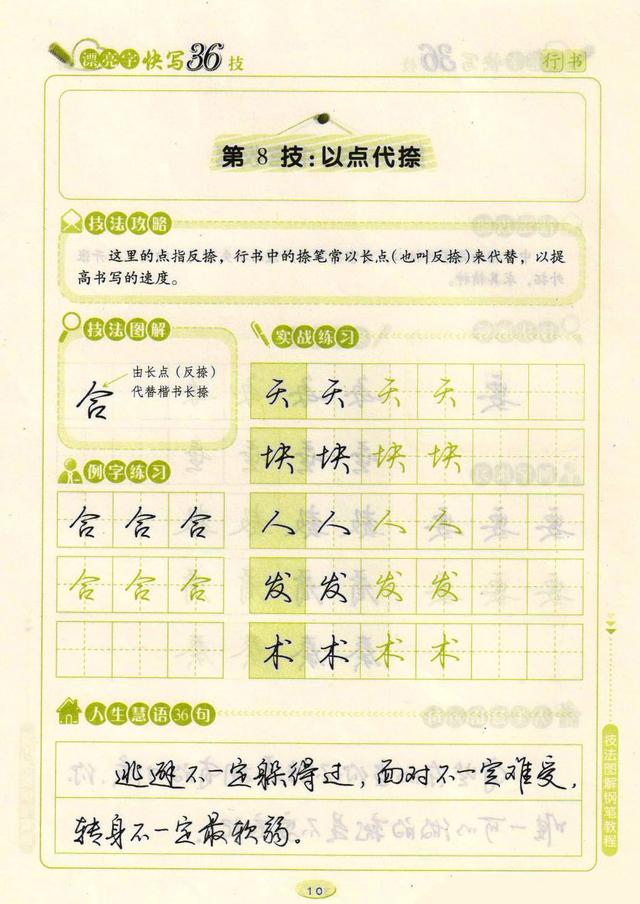 漂亮字快写36技
行书
第8技:以点代捺
技法攻略
这里的点指反捺，行书中的捺笔常以长点(也叫反捺)来代替，以提
高书写的速度。
技法图解
由长点（反捺）
代替楷书长捺
合
实战练习
天天天天
块块块块
人人人人
发发发发
术术术术
例字练习
合合合
合合合
人生慧语36句
逃避不一定躲得过，面对不一定难受，
转身不一定最软弱。
技法图解钢笔教程
10